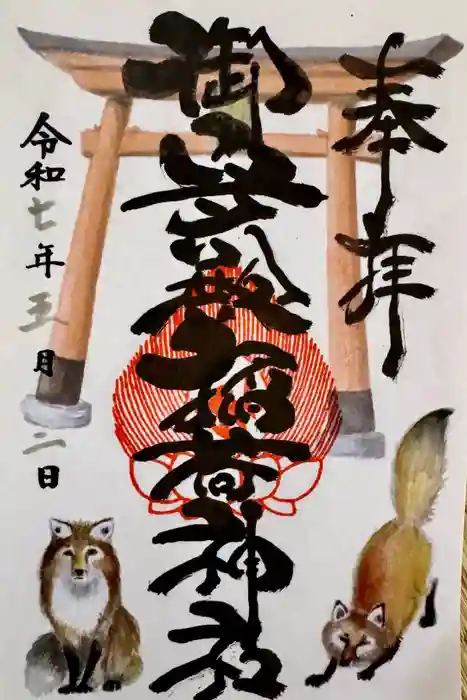 奉拝
御殿稲荷神社
令和七年五月二日